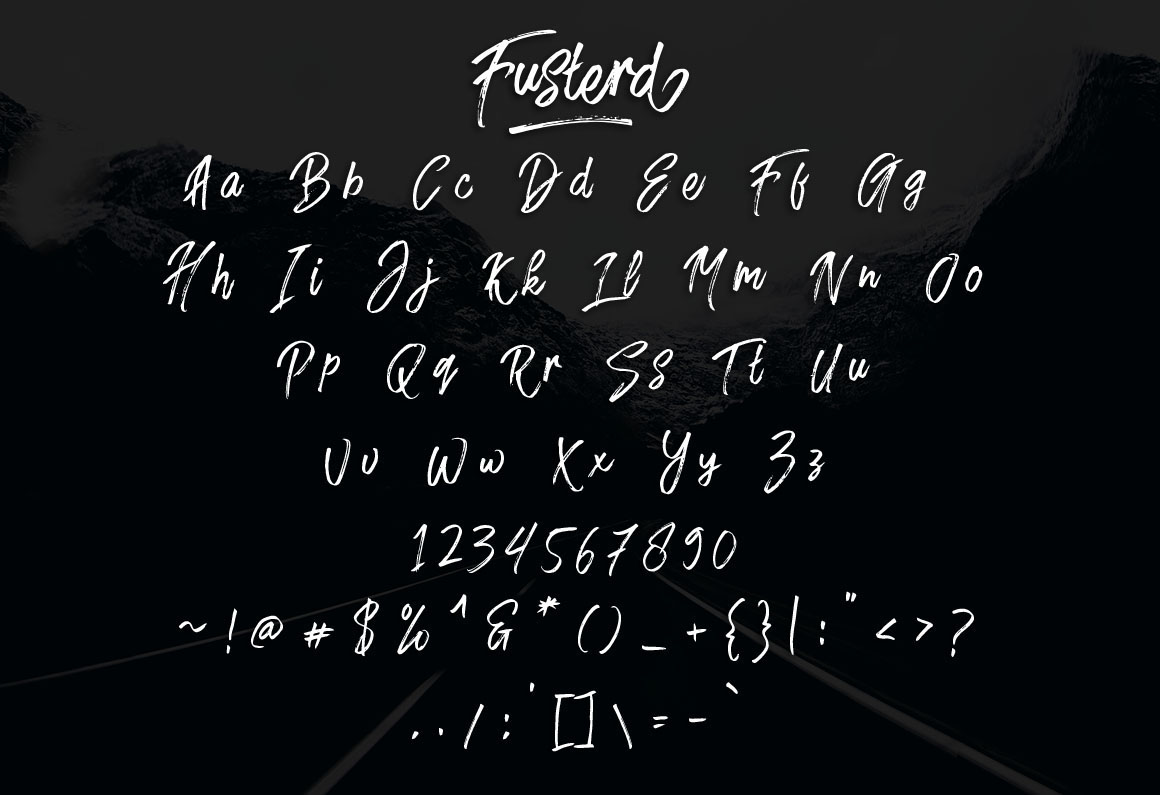 Fusterd
Aa Bb Cc Dd Ee Ff Gg
Hh Ii Jj Kk Ll Mm Nn Oo
Pp Qq Rr Ss Tt Uu
Vv Ww Xx Yy Zz
1234567890
~ ! @ # $ % ^ & * ( ) _ + { } | : " < > ?
. . / : ' [ ] \ = - `